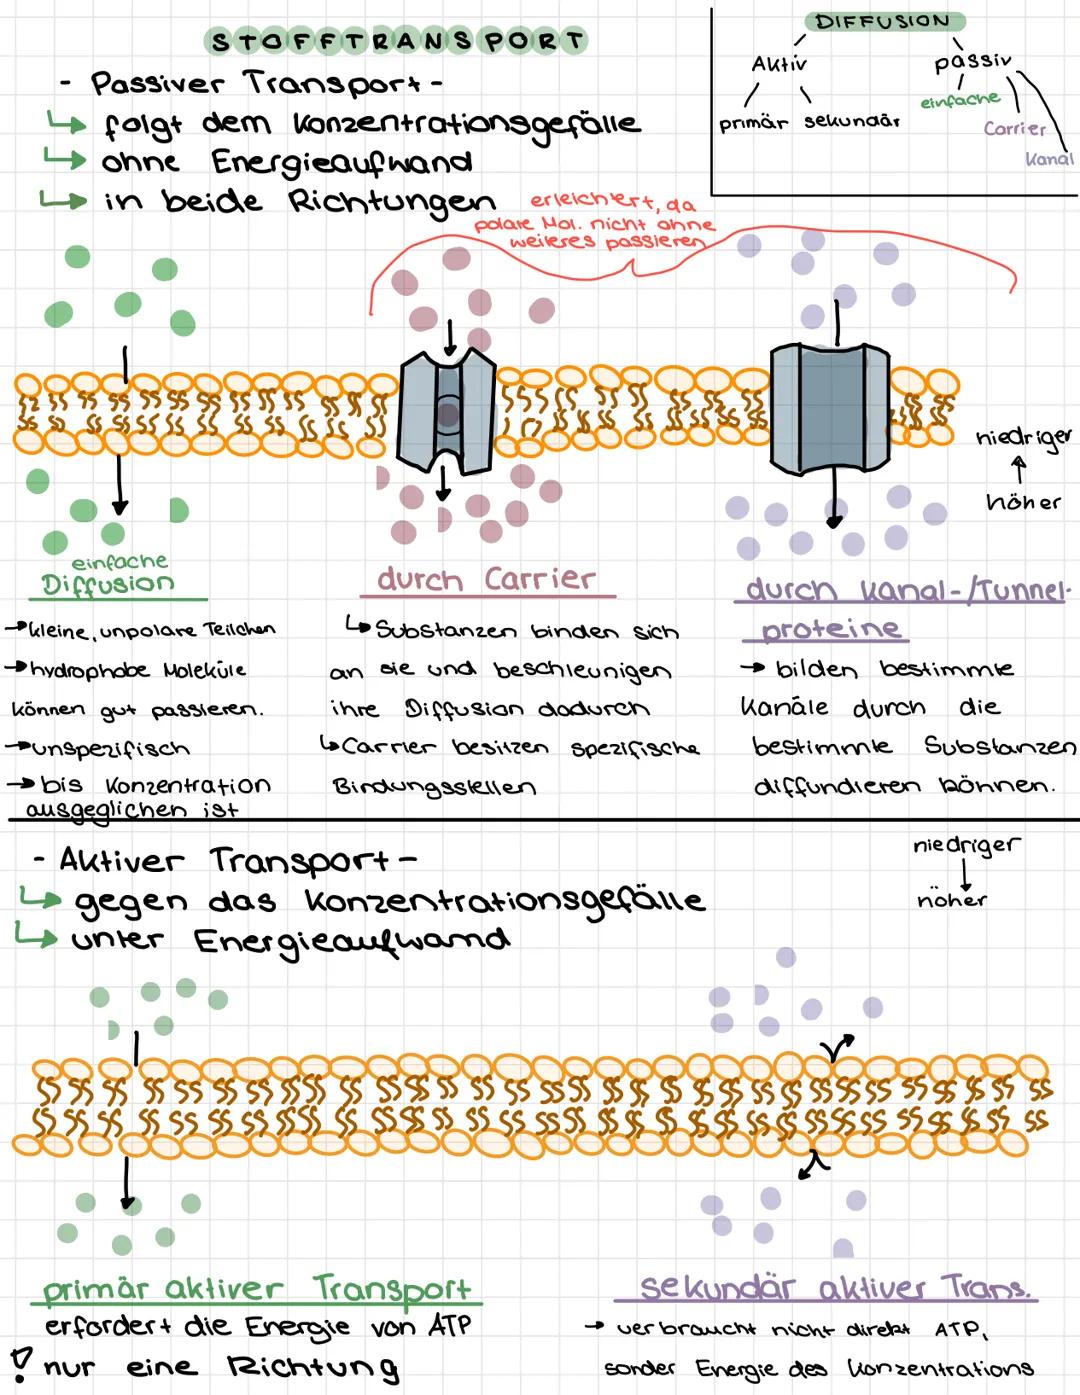 STOFFTRANSPORT
- Passiver Transport -
↳ folgt dem Konzentrationsgefälle
↳ ohne Energieaufwand
↳ in beide Richtungen
DIFFUSION
Aktiv
passiv
primär sekundär
einfache
Carrier
Kanal
erleichtert, da
polare Mol. nicht ohne
weiteres passieren
niedriger
↑
höher
einfache
Diffusion
→ kleine, unpolare Teilchen
→ hydrophobe Moleküle
können gut passieren.
→ unspezifisch
→ bis Konzentration
ausgeglichen ist
durch Carrier
↳ Substanzen binden sich
an sie und beschleunigen
ihre Diffusion dadurch
↳ Carrier besitzen spezifische
Bindungsstellen
durch Kanal-/Tunnel-
proteine
→ bilden bestimmte
Kanäle durch die
bestimmte Substanzen
diffundieren können.
- Aktiver Transport -
↳ gegen das Konzentrationsgefälle
↳ unter Energieaufwand
niedriger
↓
höher
primär aktiver Transport
erfordert die Energie von ATP
! nur eine Richtung
sekundär aktiver Trans.
→ verbraucht nicht direkt ATP,
sonder Energie des Konzentrations